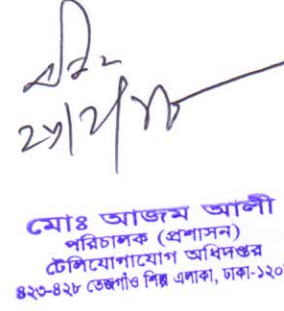 মোঃ আজম আলী
পরিচালক (প্রশাসন)
টেলিযোগাযোগ অধিদপ্তর
৪২৩-৪২৮ তেজগাঁও শিল্প এলাকা, ঢাকা-১২০